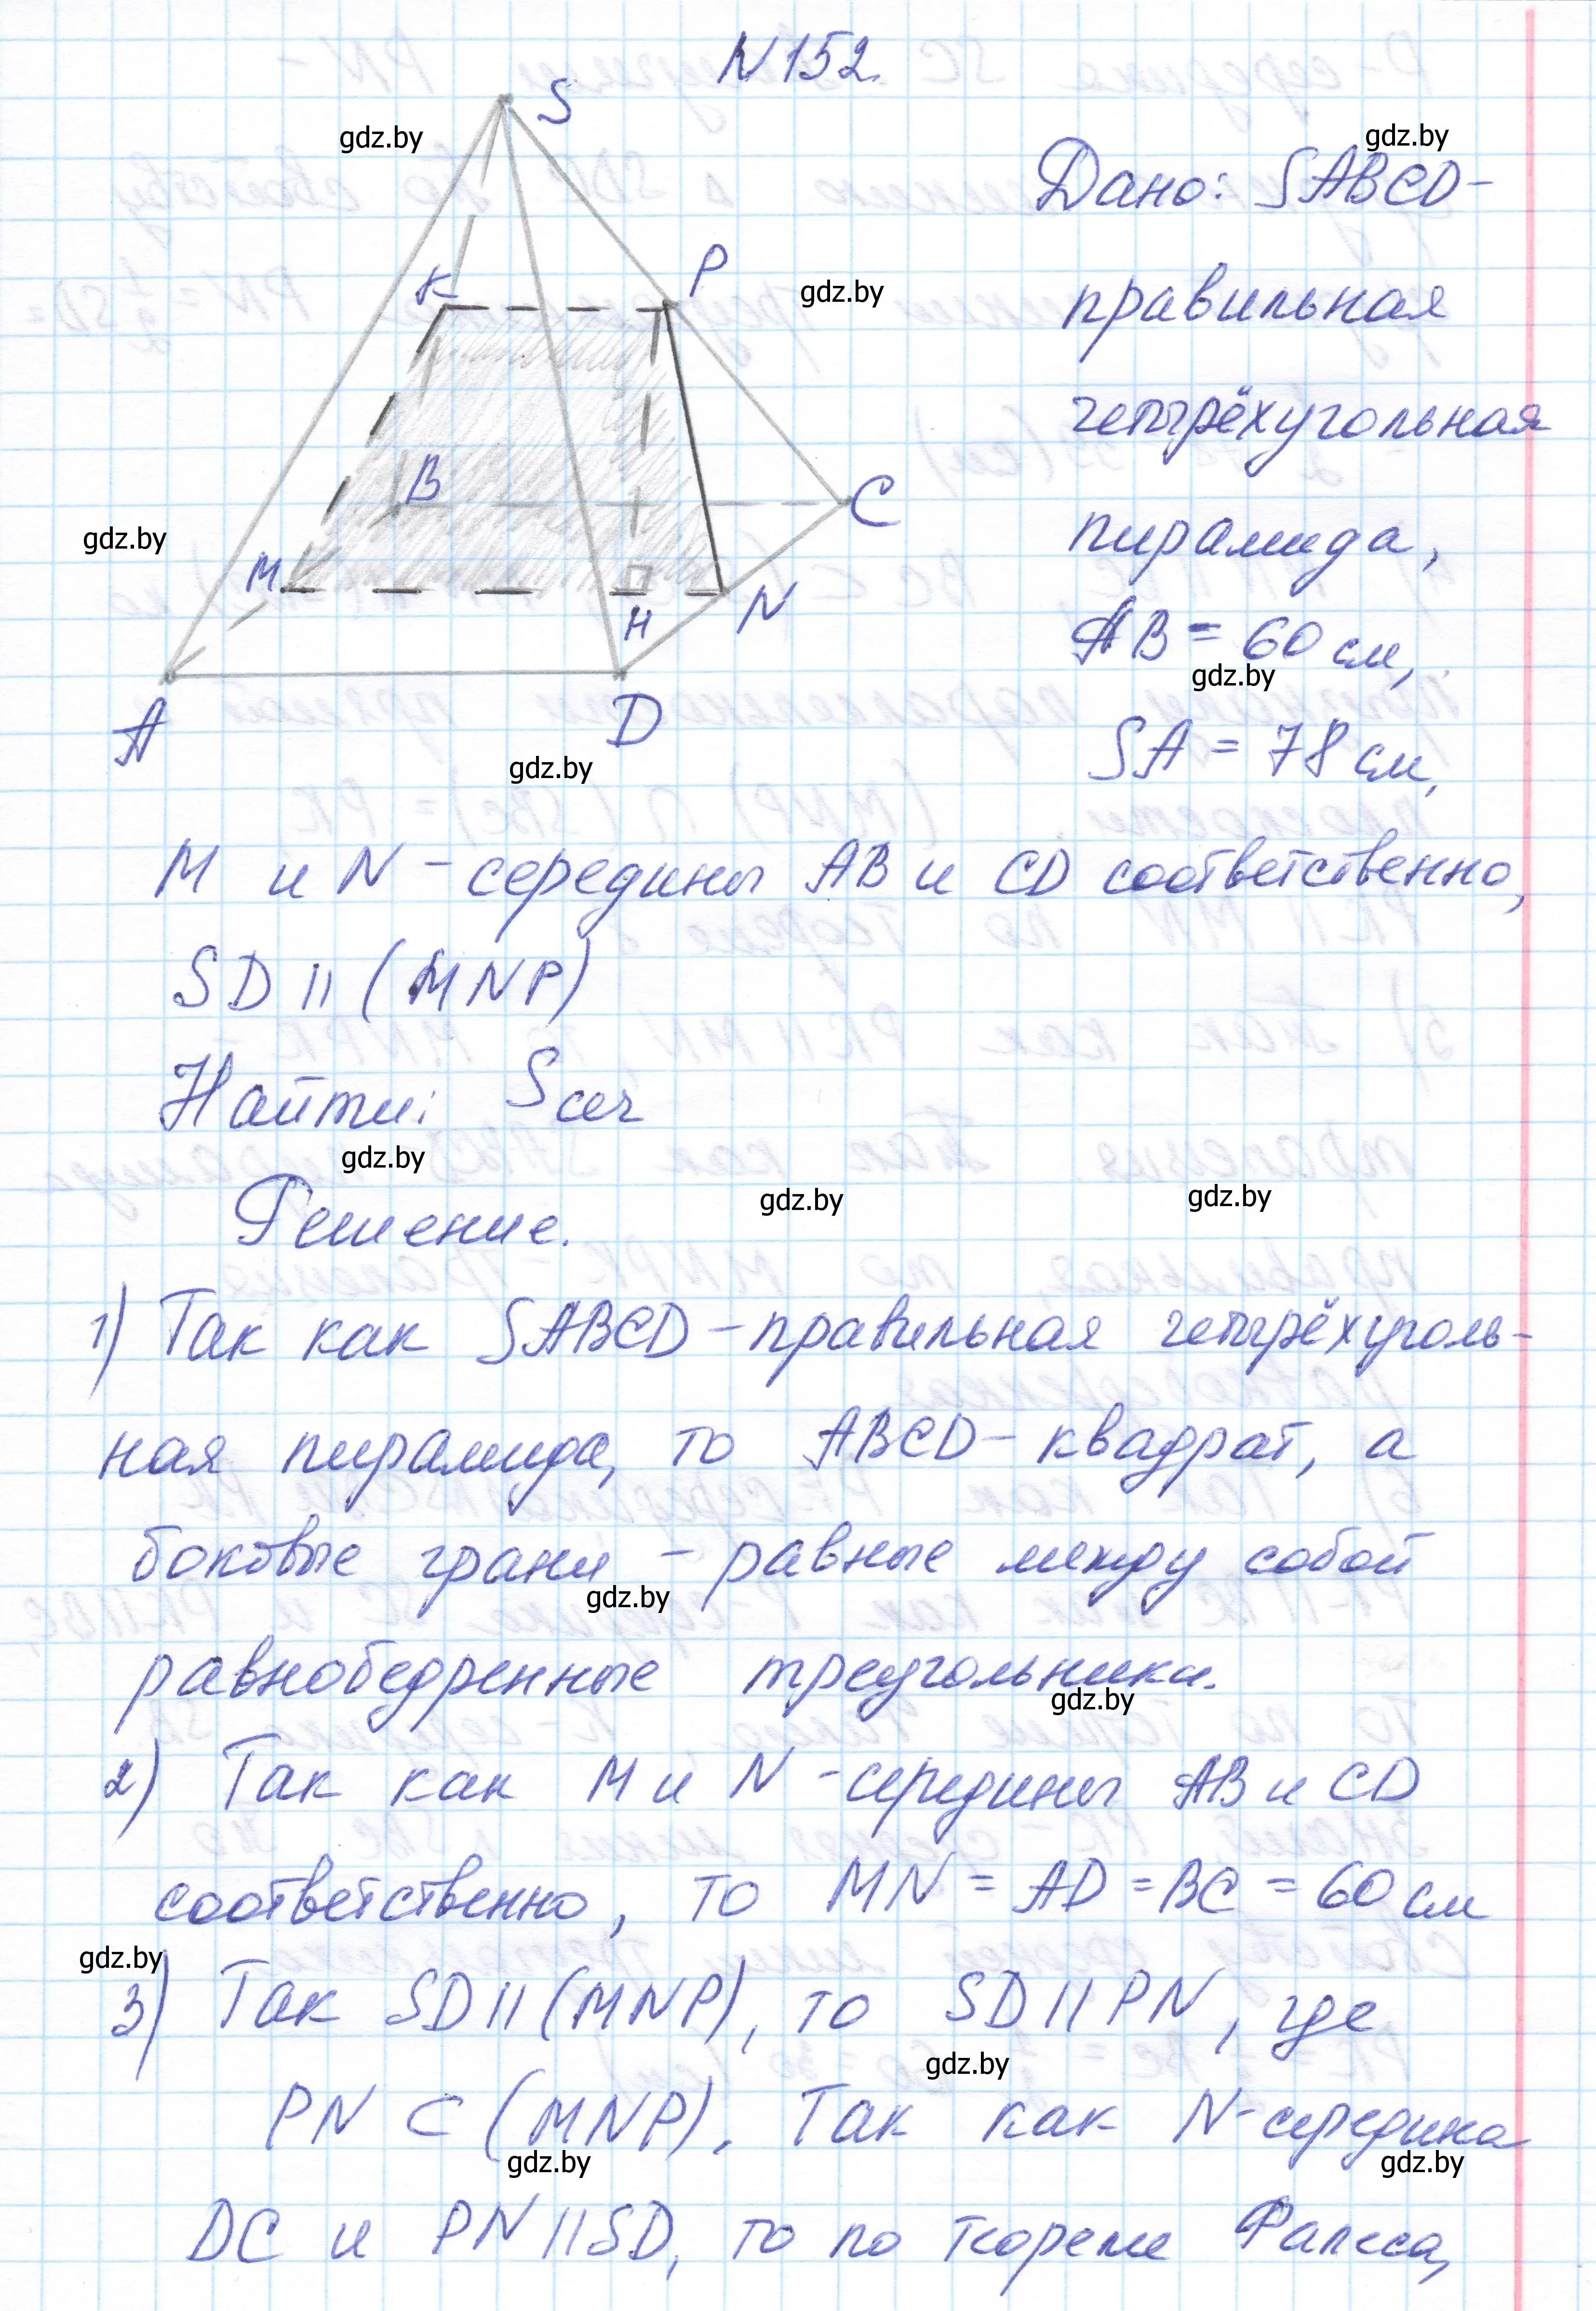 N152.
S
gdz.by
gdz.by
Дано: SABCD-
K
P
gdz.by
правильная
четырёхугольная
B
C
gdz.by
пирамида,
M
H
N
AB = 60 см,
gdz.by
A
D
SA = 78 см,
gdz.by
M и N - середины AB и CD соответственно,
SD || (MNP)
Найти: Sсеч
gdz.by
gdz.by
gdz.by
Решение.
1) Так как SABCD - правильная четырёхуголь-
ная пирамида, то ABCD - квадрат, а
боковые грани - равные между собой
gdz.by
равнобедренные треугольники.
gdz.by
2) Так как M и N - середины AB и CD
соответственно, то MN = AD = BC = 60 см
gdz.by
3) Так SD || (MNP), то SD || PN, где
gdz.by
PN ⊂ (MNP). Так как N - середина
gdz.by
gdz.by
DC и PN || SD, то по теореме Фалеса,